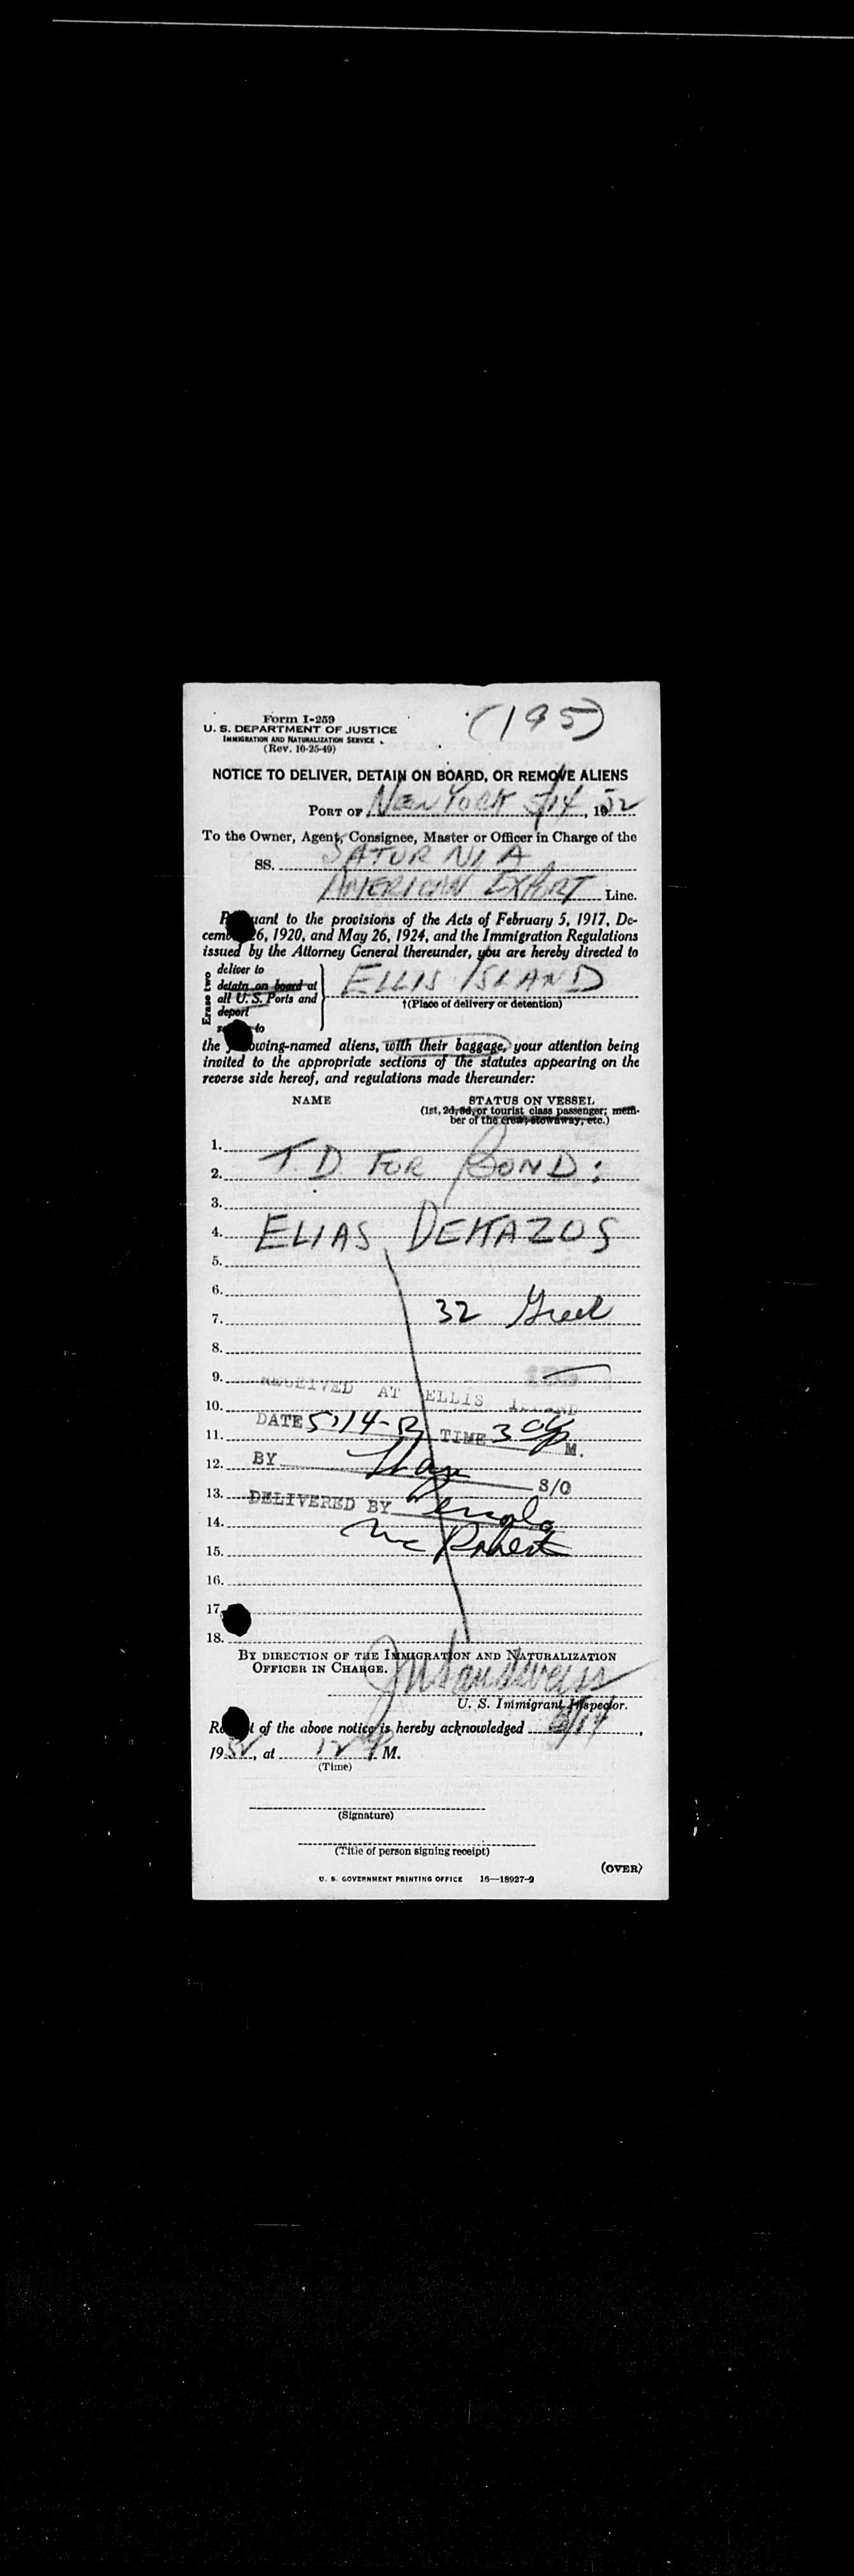 Form I-259
U. S. DEPARTMENT OF JUSTICE
IMMIGRATION AND NATURALIZATION SERVICE
(Rev. 10-25-49)
(195)
NOTICE TO DELIVER, DETAIN ON BOARD, OR REMOVE ALIENS
PORT OF NEW YORK 5/14, 1952
To the Owner, Agent, Consignee, Master or Officer in Charge of the
SS. SATURNIA
AMERICAN EXPORT Line.
P uant to the provisions of the Acts of February 5, 1917, De-
cemb 26, 1920, and May 26, 1924, and the Immigration Regulations
issued by the Attorney General thereunder, you are hereby directed to
Erase two
deliver to
detain on board at
all U. S. Ports and
deport
to
ELLIS ISLAND
†(Place of delivery or detention)
the owing-named aliens, with their baggage, your attention being
invited to the appropriate sections of the statutes appearing on the
reverse side hereof, and regulations made thereunder:
NAME STATUS ON VESSEL
(1st, 2d, 3d, or tourist class passenger; mem-
ber of the crew, stowaway, etc.)
1.
2. T. D. FOR BOND:
3.
4. ELIAS DEKAZOS
5.
6.
7. 32 Greek
8.
9. RECEIVED AT ELLIS ISLAND
10.
11. DATE 5/14-52 TIME 3 00 P M.
12. BY S/O
13. DELIVERED BY
14.
15.
16.
17.
18.
BY DIRECTION OF THE IMMIGRATION AND NATURALIZATION
OFFICER IN CHARGE.
U. S. Immigrant Inspector.
Re t of the above notice is hereby acknowledged 5/14,
1952, at 12 P. M.
(Time)
(Signature)
(Title of person signing receipt)
(OVER)
U. S. GOVERNMENT PRINTING OFFICE 16—18927-2